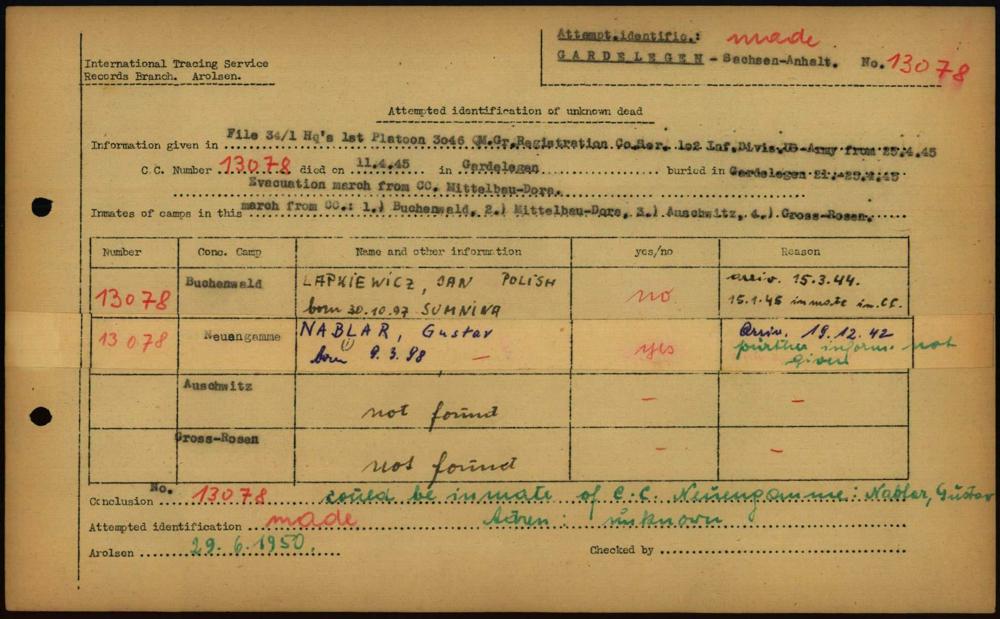 Attempt.identific.: made
GARDELEGEN - Sachsen-Anhalt. No. 13078
International Tracing Service
Records Branch. Arolsen.
Attempted identification of unknown dead
Information given in File 34/1 Hq's 1st Platoon 3046 QM.Gr.Registration Co.Her. 102 Inf.Divis.US-Army from 25.4.45
C.C. Number 13078 died on 11.4.45 in Gardelegen buried in Gardelegen 21.-25.4.45
Evacuation march from CC. Mittelbau-Dora.
Inmates of camps in this march from CC.: 1.) Buchenwald, 2.) Mittelbau-Dora, 3.) Auschwitz, 4.) Gross-Rosen.
Number Conc. Camp Name and other information yes/no Reason
13078 Buchenwald LAPKIEWICZ, JAN POLISH no arriv. 15.3.44.
born 30.10.97 SUMNINA 15.1.45 inmate in CC.
13078 Neuengamme NABLAR, Gustav yes Arriv. 19.12.42
born 9.3.98 — further inform. not
given
Auschwitz not found — —
Gross-Rosen not found — —
Conclusion No. 13078 could be inmate of C.C. Neuengamme: Nablar, Gustav
Attempted identification made Adren: unknown
Arolsen 29.6.1950. Checked by